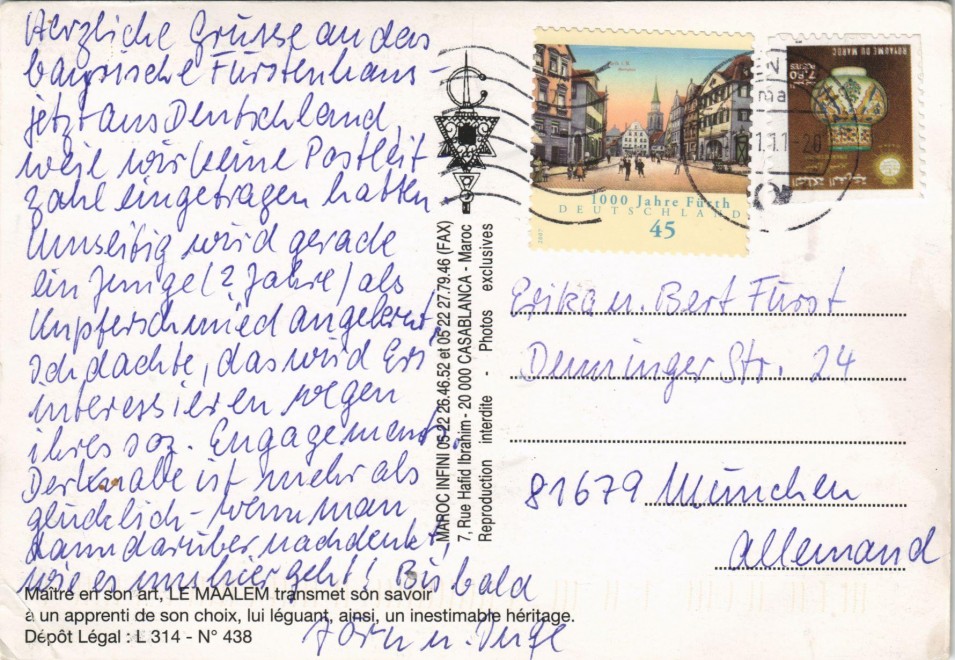 Herzliche Grüsse an das
bayrische Fürstenhaus -
jetzt aus Deutschland,
weil wir keine Postleit
zahl eingetragen hatten
Umseitig wird gerade
ein Junge (? Jahre) als
Kupferschmied angelernt,
Ich dachte, das wird Eri
interessieren wegen
ihres soz. Engagements.
Der Knabe ist mehr als
glücklich - wenn man
dann darüber nachdenkt,
wie es uns hier geht! Bis bald
Jörn u. Inge
Maître en son art, LE MAALEM transmet son savoir
à un apprenti de son choix, lui léguant, ainsi, un inestimable héritage.
Dépôt Légal : L 314 - N° 438
MAROC INFINI 05 22 26.46.52 et 05 22 27.79.46 (FAX)
7, Rue Hafid Ibrahim - 20 000 CASABLANCA - Maroc
Reproduction interdite - Photos exclusives
1000 Jahre Fürth
DEUTSCHLAND
45
2007
ROYAUME DU MAROC
7,80
المملكة المغربية
Erika u. Bert Fürst
Denninger Str. 24
81679 München
Allemand